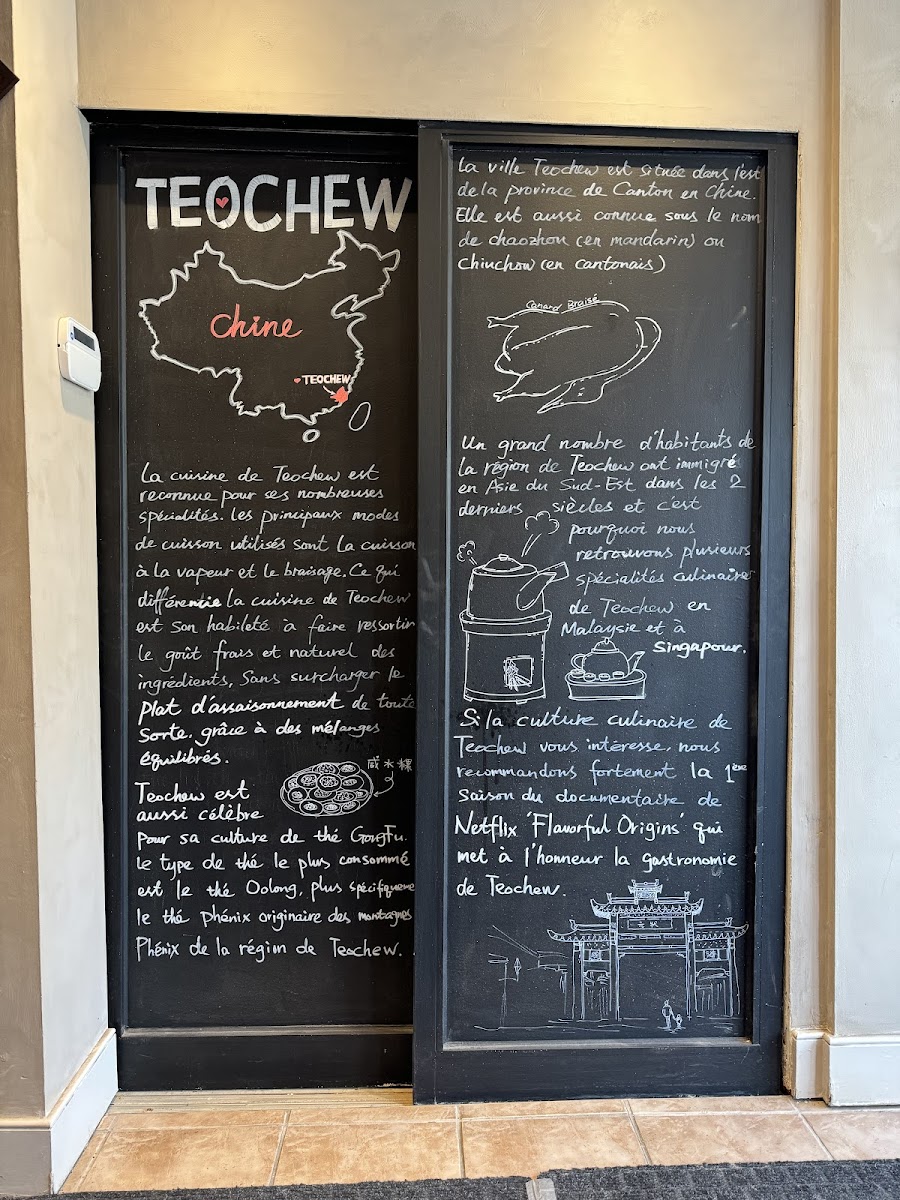 TEOCHEW
Chine
TEOCHEW
La cuisine de Teochew est
reconnue pour ses nombreuses
spécialités. Les principaux modes
de cuisson utilisés sont la cuisson
à la vapeur et le braisage. Ce qui
différentie la cuisine de Teochew
est son habileté à faire ressortir
le goût frais et naturel des
ingrédients, Sans surcharger le
plat d'assaisonnement de toute
Sorte, grâce à des mélanges
équilibrés.
咸水粿
Teochew est
aussi célèbre
Pour sa culture de thé GongFu.
Le type de thé le plus consommé
est le thé Oolong, plus spécifiqueme
le thé Phénix originaire des montagnes
Phénix de la région de Teochew.
La ville Teochew est située dans l'est
de la province de Canton en Chine.
Elle est aussi connue sous le nom
de chaozhou (en mandarin) ou
Chiuchow (en cantonais)
Canard Braisé
Un grand nombre d'habitants de
la région de Teochew ont immigré
en Asie du Sud-Est dans les 2
derniers siècles et c'est
pourquoi nous
retrouvons plusieurs
spécialités culinaires
de Teochew en
Malaysie et à
Singapour.
Si la culture culinaire de
Teochew vous intéresse, nous
recommandons fortement la 1ère
Saison du documentaire de
Netflix 'Flavorful Origins' qui
met à l'honneur la gastronomie
de Teochew.